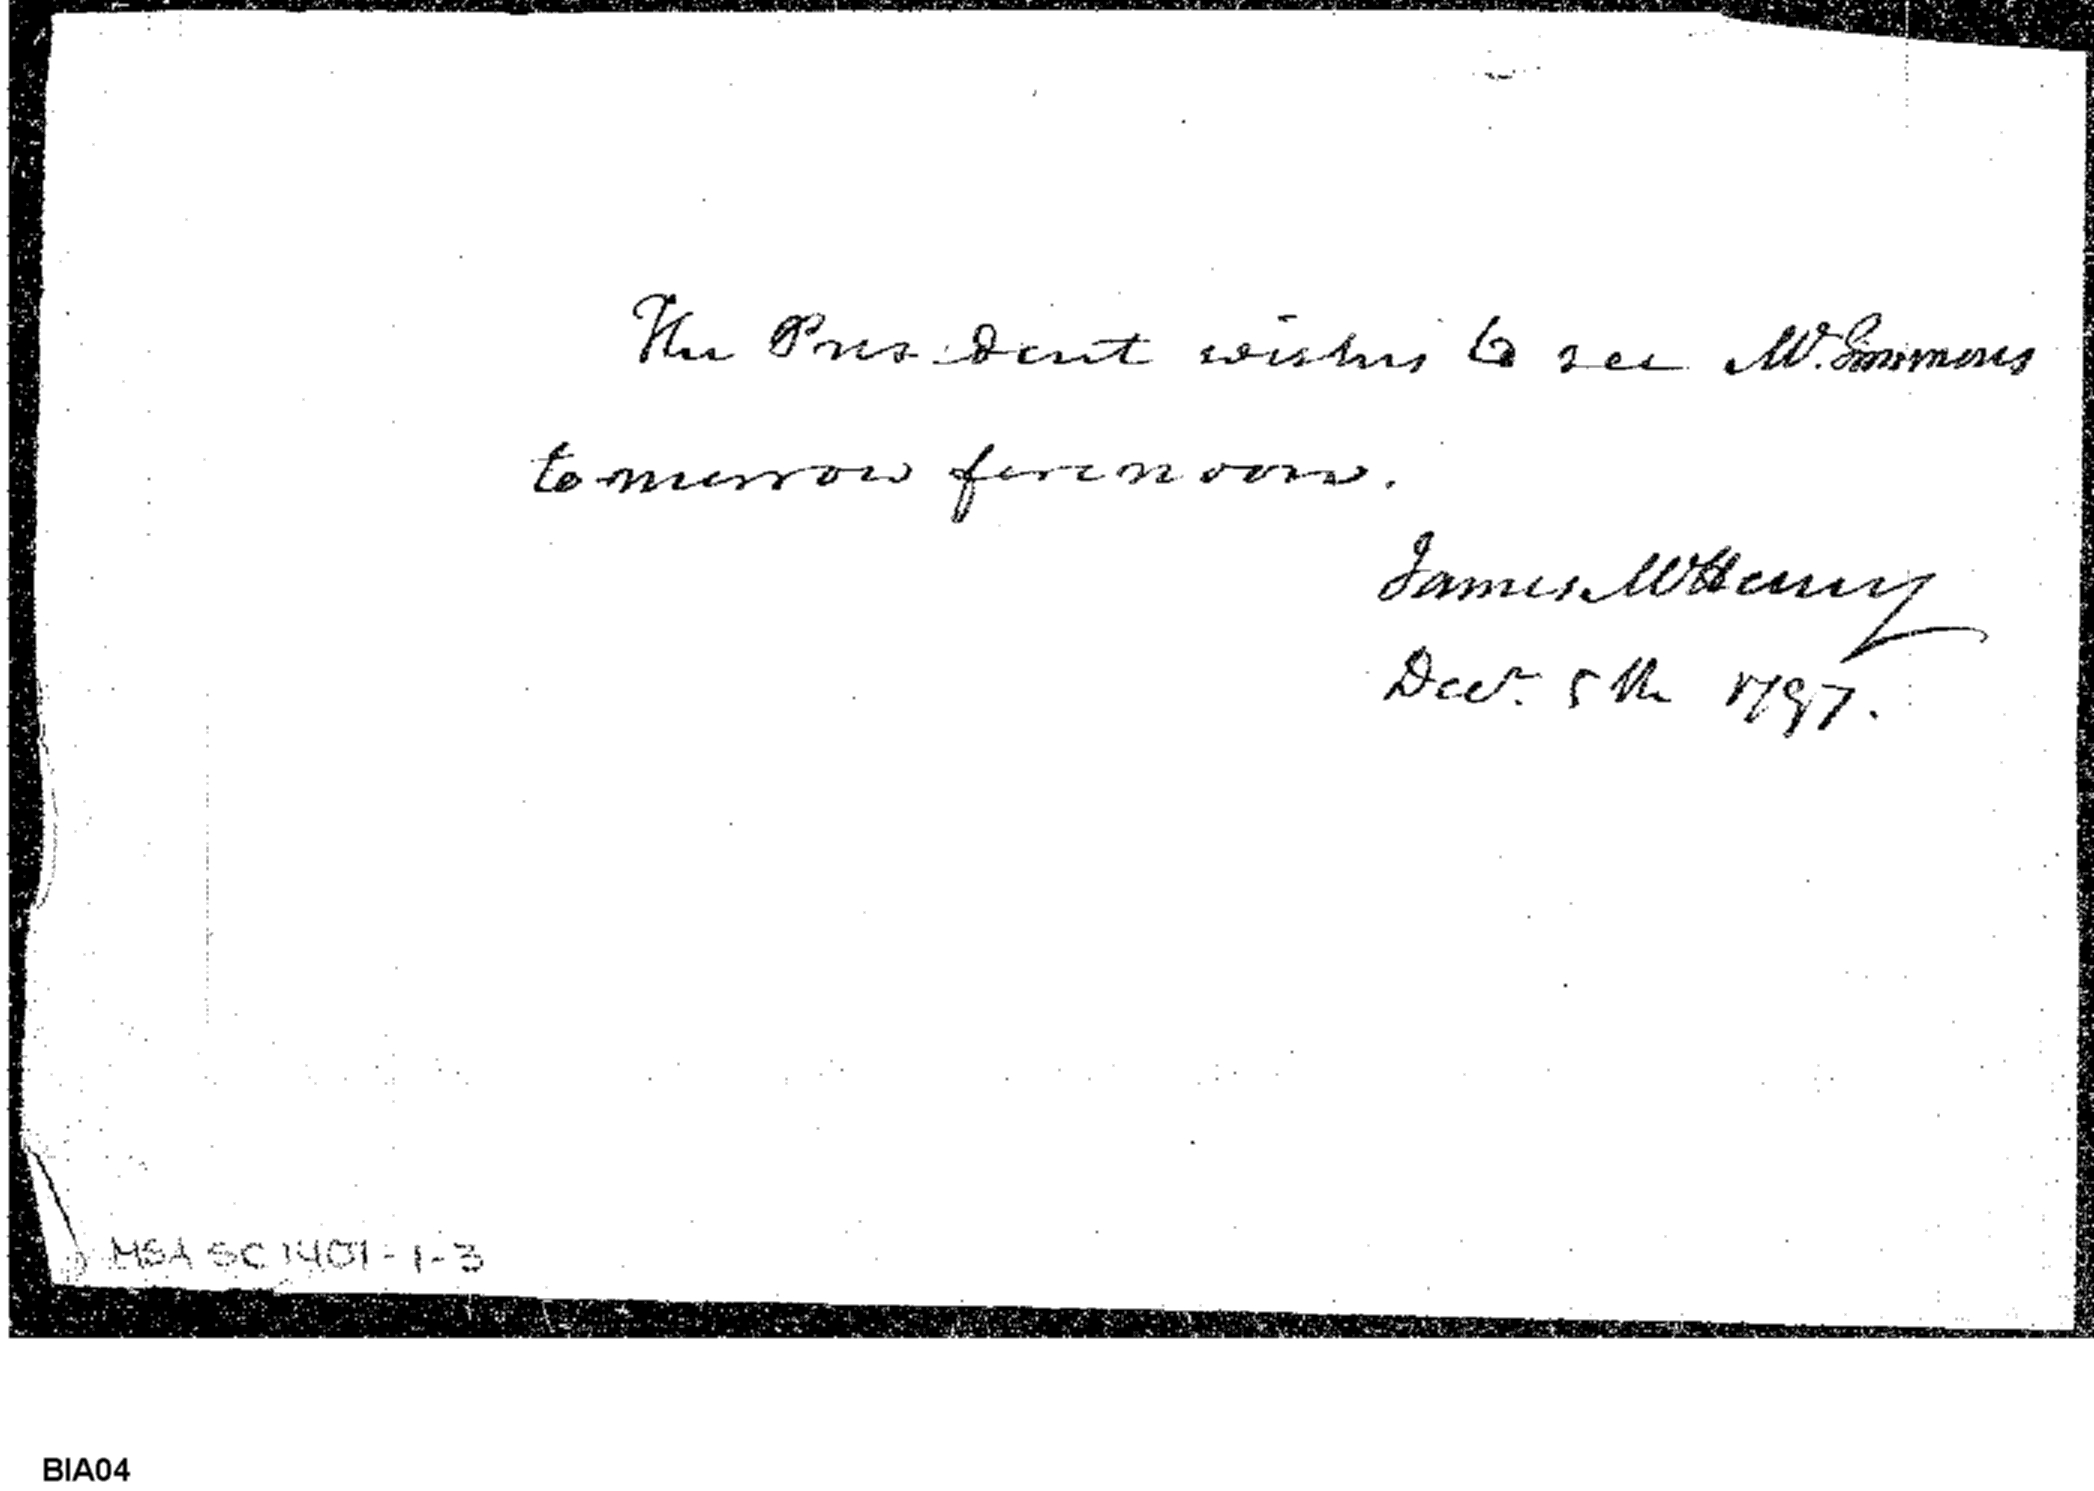 The President wishes to see Mr. Simmons
tomorrow forenoon.
James McHenry
Decr. 5th 1797.
MSA SC 1401-1-3
BIA04